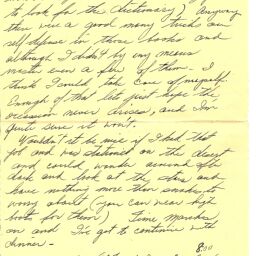 to look for the dictionary) Anyway
there were a good many trick on
self defense in those books and
although I didn't by any means
master even a few of them - I
think I could take care of myself.
Enough of that lets just hope the
occasion never arises, and I'm
quite sure it won't.
Wouldn't it be nice if I had that
job and was stationed on the desert
and could wander around after
dark and look at the stars and
have nothing more than snakes to
worry about (you can wear high
boots for them) Time marches
on and I've got to continue with
dinner -
8:30